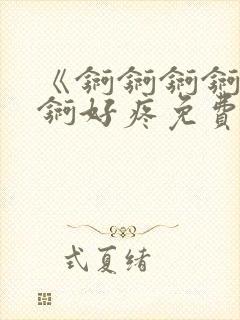 《锕锕锕锕
锕好疼免費
式夏绪